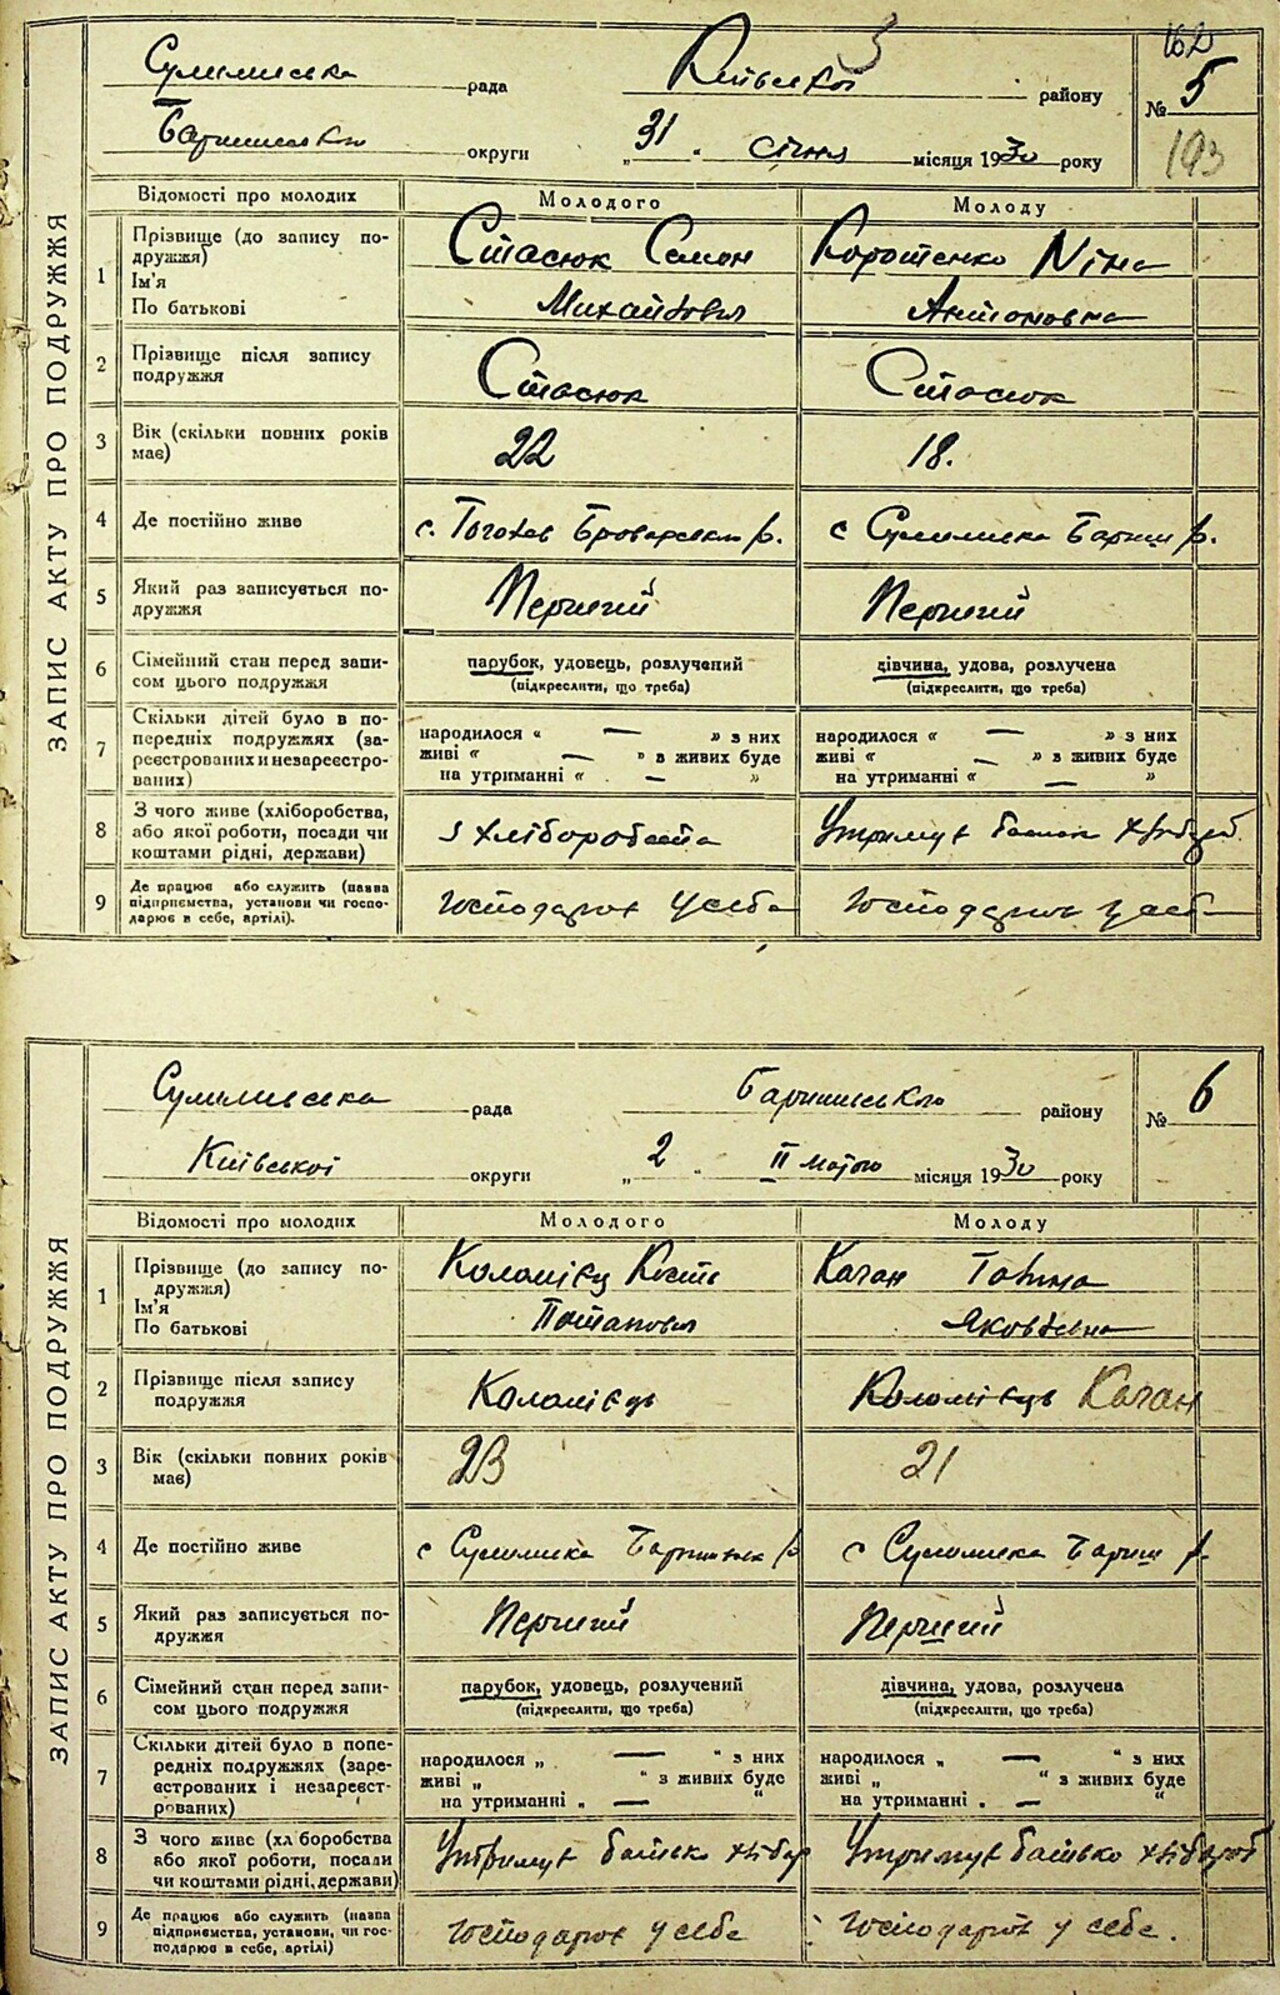 162
Сулимівська рада Київської району № 5
Баришівською округи „31" січня місяця 1930 року
193
ЗАПИС АКТУ ПРО ПОДРУЖЖЯ
Відомості про молодих Молодого Молоду
1 Прізвище (до запису подружжя) Стасюк Семен Коротенко Ніна
Ім'я
По батькові Михайлович Антоновна
2 Прізвище після запису подружжя Стасюк Стасюк
3 Вік (скільки повних років має) 22 18.
4 Де постійно живе с. Гоголев Броварськ р. с Сулимівка Бариш р.
5 Який раз записується подружжя Перший Перший
6 Сімейний стан перед записом цього подружжя парубок, удовець, розлучений дівчина, удова, розлучена
(підкреслити, що треба) (підкреслити, що треба)
7 Скільки дітей було в попередніх подружжях (зареєстрованих и незареєстрованих)
народилося « — » з них народилося « — » з них
живі « — » в живих буде живі « — » в живих буде
на утриманні « — » на утриманні « — »
8 З чого живе (хліборобства, або якої роботи, посади чи коштами рідні, держави) з хліборобства Утримує
9 Де працює або служить (назва підприємства, установи чи господарює в себе, артілі). Господарює у себе Господарює у себе
Сулимівська рада Баришівською району № 6
Київської округи „2 " II лютого місяця 1930 року
ЗАПИС АКТУ ПРО ПОДРУЖЖЯ
Відомості про молодих Молодого Молоду
1 Прізвище (до запису подружжя) Коломієц Кость Качан
Ім'я
По батькові Потапович Яковлевна
2 Прізвище після запису подружжя Коломієць Коломієць Качан
3 Вік (скільки повних років має) 23 21
4 Де постійно живе с Сулимівка р с Сулимівка Бариш р.
5 Який раз записується подружжя Перший Перший
6 Сімейний стан перед записом цього подружжя парубок, удовець, розлучений дівчина, удова, розлучена
(підкреслити, що треба) (підкреслити, що треба)
7 Скільки дітей було в попередніх подружжях (зареєстрованих і незареєстрованих)
народилося „ — “ з них народилося „ — “ з них
живі „ “ з живих буде живі „ “ з живих буде
на утриманні „ — “ на утриманні „ — “
8 З чого живе (хл боробства або якої роботи, посади чи коштами рідні, держави) Утримує батько хлібор Утримує батько хлібороб
9 Де працює або служить (назва підприємства, установи, чи господарює в себе, артілі) Господарює у себе Господарює у себе.